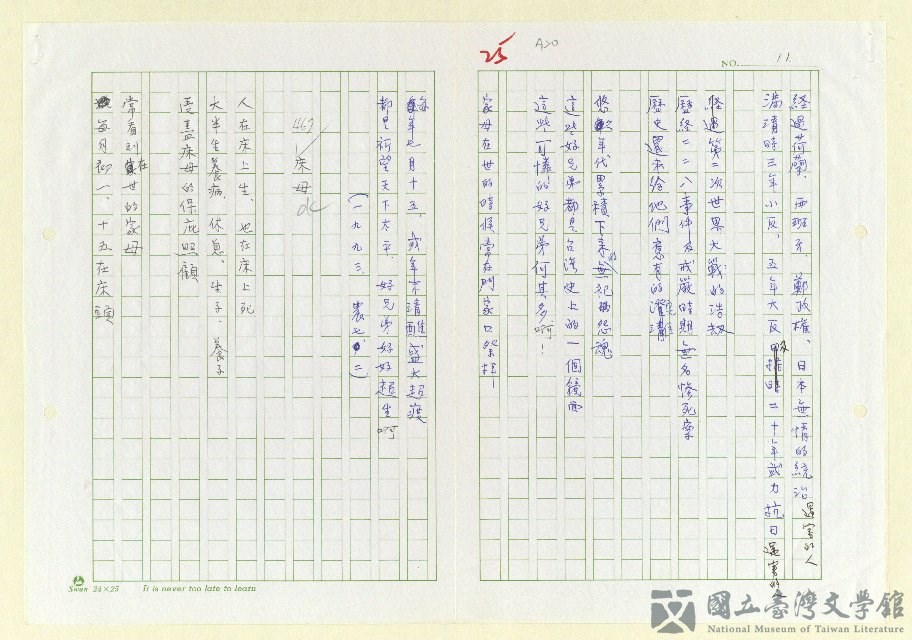 25
A20
NO. 11
經過荷蘭、西班牙、鄭政權、日本無情的統治遇害的人
滿清時三年小反、五年大反 二十年武力抗日遇害的人
經過第二次世界大戰的浩劫
歷經二二八事件及戒嚴時期無名慘死案
歷史還未給他們應有的澄清
悠久年代累積下來的無紀怨魂
這些好兄弟都是台灣史上的一個鏡面
這些可憐的好兄弟何其多啊!
家母在世的時候常在門家口祭拜!
每年七月十五,或年不清醮盛大超渡
都是祈望天下太平,好兄弟好好超生啊
(一九九三、農七、二)
467
床母
ok
人在床上生、也在床上死
大半生養病、休息、生子、養子
受盡床母的保庇照顧
常看到在世的家母
每月初一、十五在床頭
Swan 24×25 It is never too late to learn
國立臺灣文學館
National Museum of Taiwan Literature